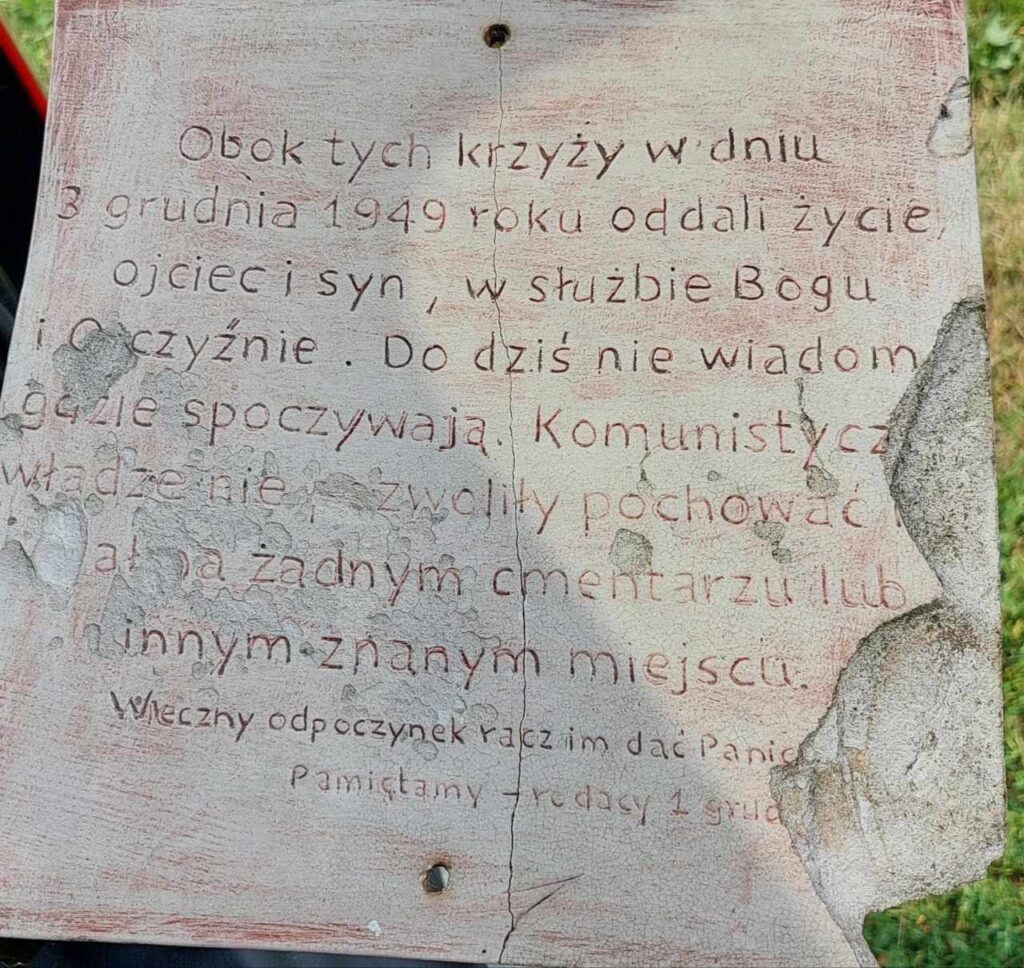 Obok tych krzyży w dniu
3 grudnia 1949 roku oddali życie,
ojciec i syn, w służbie Bogu
i O czyźnie. Do dziś nie wiadom
gdzie spoczywają. Komunistycz
władze nie zwoliły pochować
na żadnym cmentarzu lub
innym znanym miejscu.
Wieczny odpoczynek racz im dać Panie
Pamiętamy - rodacy 1 grud